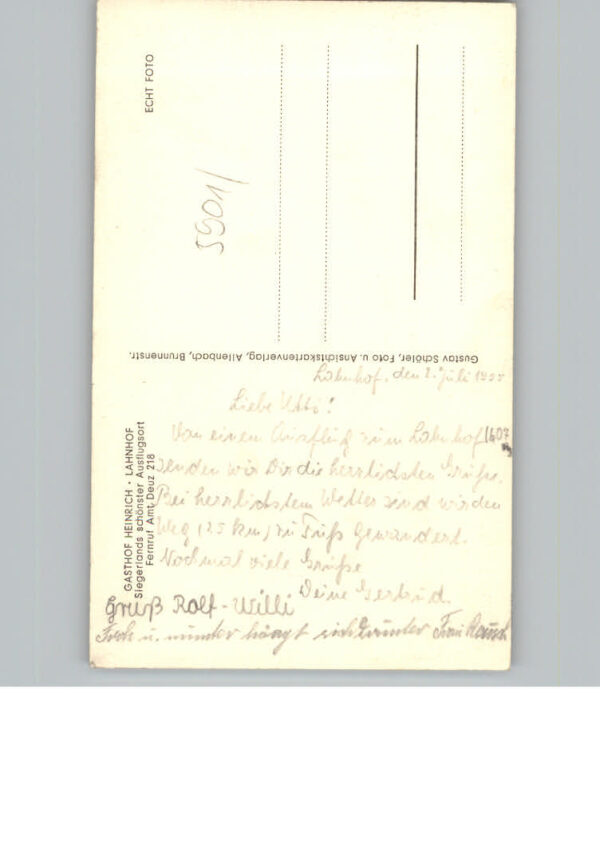 ECHT FOTO
5901/
Gustav Schöler, Foto u. Ansichtskartenverlag, Allenbach, Brunnenstr.
GASTHOF HEINRICH · LAHNHOF
Siegerlands schönster Ausflugsort
Fernruf Amt Deuz 218
Lahnhof, den 2. Juli 1955
Liebe
Von einem Ausflug zum Lahnhof
senden wir Dir die herzlichsten Grüße.
Bei herrlichstem Wetter sind wir den
Weg (25 km) zu Fuß gewandert.
Nochmal viele Grüße
Deine Gertrud.
Gruß Rolf-Willi
Froh u. munter hängt sich drunter Frau
1607